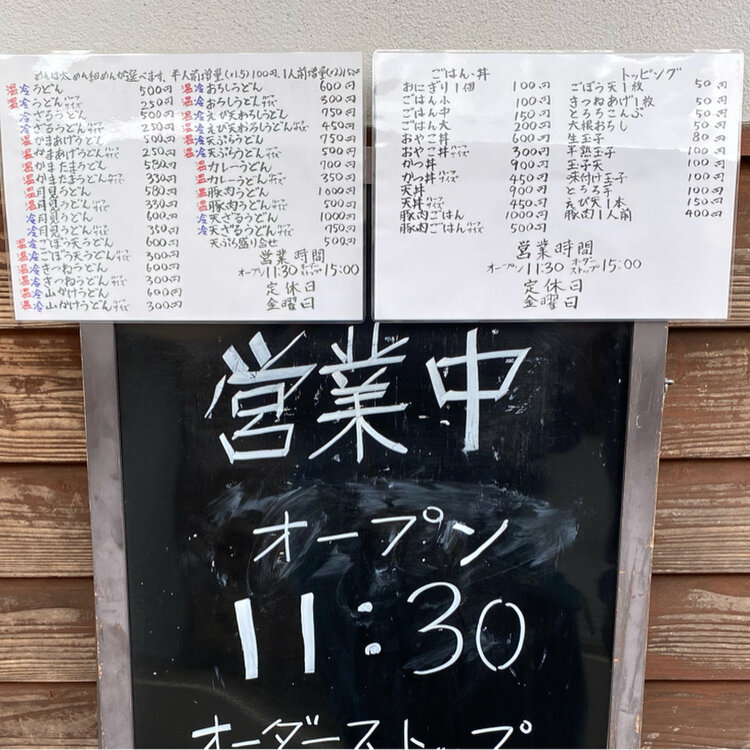 めんは太めん細めんが選べます。半人前増量(×1.5)100円、1人前増量(×2)150
温冷うどん 500円
冷うどんハーフサイズ 250円
冷ざるうどん 500円
冷ざるうどんハーフサイズ 250円
温かまあげうどん 500円
温かまあげうどんハーフサイズ 250円
温かまたまうどん 580円
温かまたまうどんハーフサイズ 330円
温月見うどん 580円
温月見うどんハーフサイズ 330円
冷月見うどん 600円
冷月見うどんハーフサイズ 350円
温冷ごぼう天うどん 600円
温冷ごぼう天うどんハーフサイズ 300円
温冷きつねうどん 600円
温冷きつねうどんハーフサイズ 300円
温冷山かけうどん 600円
温冷山かけうどんハーフサイズ 300円
温冷おろしうどん 600円
温冷おろしうどんハーフサイズ 300円
温冷えび天おろしうどん 750円
温冷えび天おろしうどんハーフサイズ 450円
温冷天ぷらうどん 750円
温冷天ぷらうどんハーフサイズ 500円
温カレーうどん 700円
温カレーうどんハーフサイズ 350円
温豚肉うどん 1000円
温豚肉うどんハーフサイズ 500円
冷天ざるうどん 1000円
冷天ざるうどんハーフサイズ 750円
天ぷら盛り合せ 500円
営業時間
オープン11:30 オーダーストップ15:00
定休日
金曜日
ごはん、丼
おにぎり1個 100円
ごはん小 100円
ごはん中 150円
ごはん大 200円
おやこ丼 600円
おやこ丼ハーフサイズ 300円
かつ丼 900円
かつ丼ハーフサイズ 450円
天丼 900円
天丼ハーフサイズ 450円
豚肉ごはん 1000円
豚肉ごはんハーフサイズ 500円
トッピング
ごぼう天1枚 50円
きつねあげ1枚 50円
とろろこんぶ 50円
大根おろし 50円
生玉子 80円
半熟玉子 100円
玉子天 100円
味付け玉子 100円
とろろ芋 100円
えび天1本 150円
豚肉1人前 400円
営業時間
オープン11:30 オーダーストップ15:00
定休日
金曜日
営業中
オープン
11:30
オーダーストップ